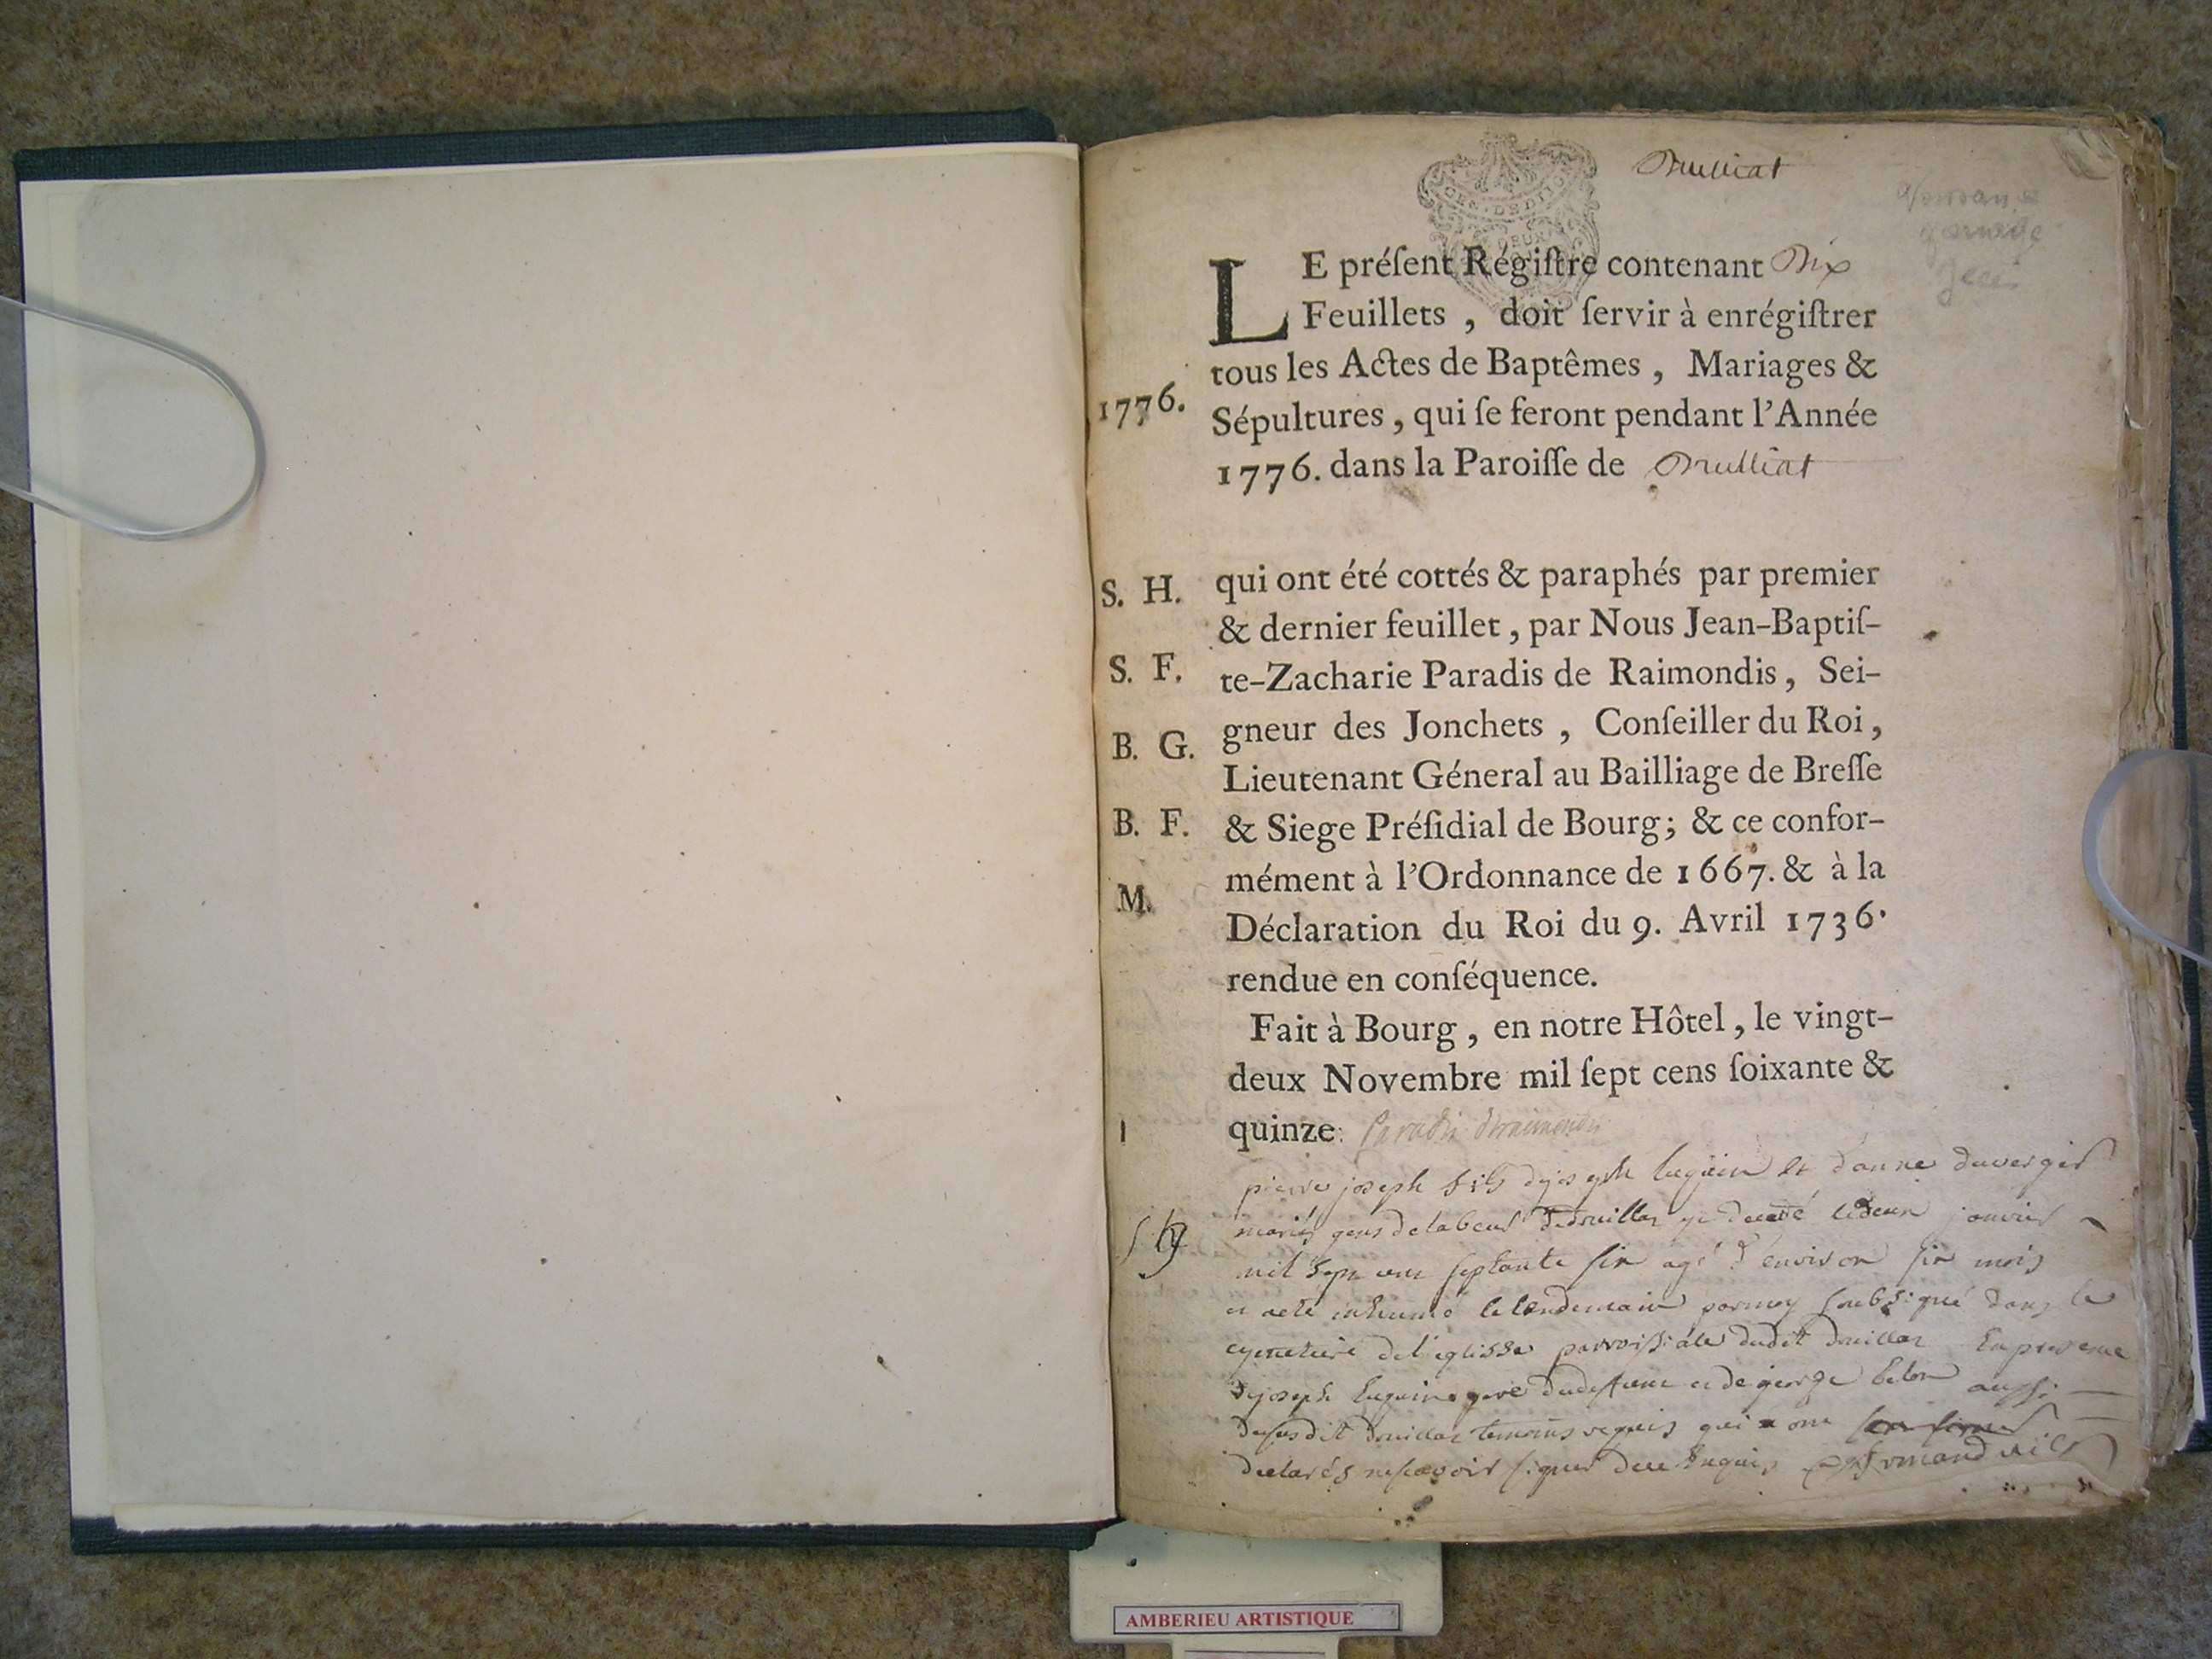 Druillat
LE préſent Régiſtre contenant Dix
Feuillets , doit ſervir à enrégiſtrer
tous les Actes de Baptêmes , Mariages &
1776.
Sépultures , qui ſe feront pendant l'Année
1776. dans la Paroiſſe de Druillat
S. H.
qui ont été cottés & paraphés par premier
& dernier feuillet , par Nous Jean-Baptiſ-
S. F.
te-Zacharie Paradis de Raimondis , Sei-
B. G.
gneur des Jonchets , Conſeiller du Roi ,
Lieutenant Géneral au Bailliage de Breſſe
B. F.
& Siege Préſidial de Bourg ; & ce confor-
M.
mément à l'Ordonnance de 1667. & à la
Déclaration du Roi du 9. Avril 1736.
rendue en conſéquence.
Fait à Bourg , en notre Hôtel , le vingt-
deux Novembre mil ſept cens ſoixante &
1
quinze. Paradis deraimondis
pierre joseph fils dejoseph et d'anne duverger
S h g
mariés gens delabeur dedruillat decedé ledeux janvier
mil sept cent septante six agé d'environ six mois
et aeté inhumé lelendemain parmoy soubsigné dans le
cymetiere del'eglisse parroissiale dudit druillat En presence
dejoseph pere dudefunt et de george belon aussi
dususdit druillat temoins requis qui ont
declarés nesçavoir signer de ce Enquis
AMBERIEU ARTISTIQUE